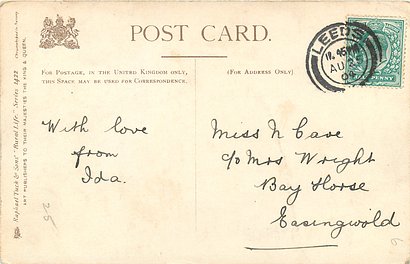 POST CARD.
FOR POSTAGE, IN THE UNITED KINGDOM ONLY,
THIS SPACE MAY BE USED FOR CORRESPONDENCE.
(FOR ADDRESS ONLY)
LEEDS
AU
PENNY
Raphael Tuck & Sons' "Rural Life." Series 1422
ART PUBLISHERS TO THEIR MAJESTIES THE KING & QUEEN.
With love
from
Ida.
Miss N Cave
c/o Mrs Wright
Bay Horse
Easingwold